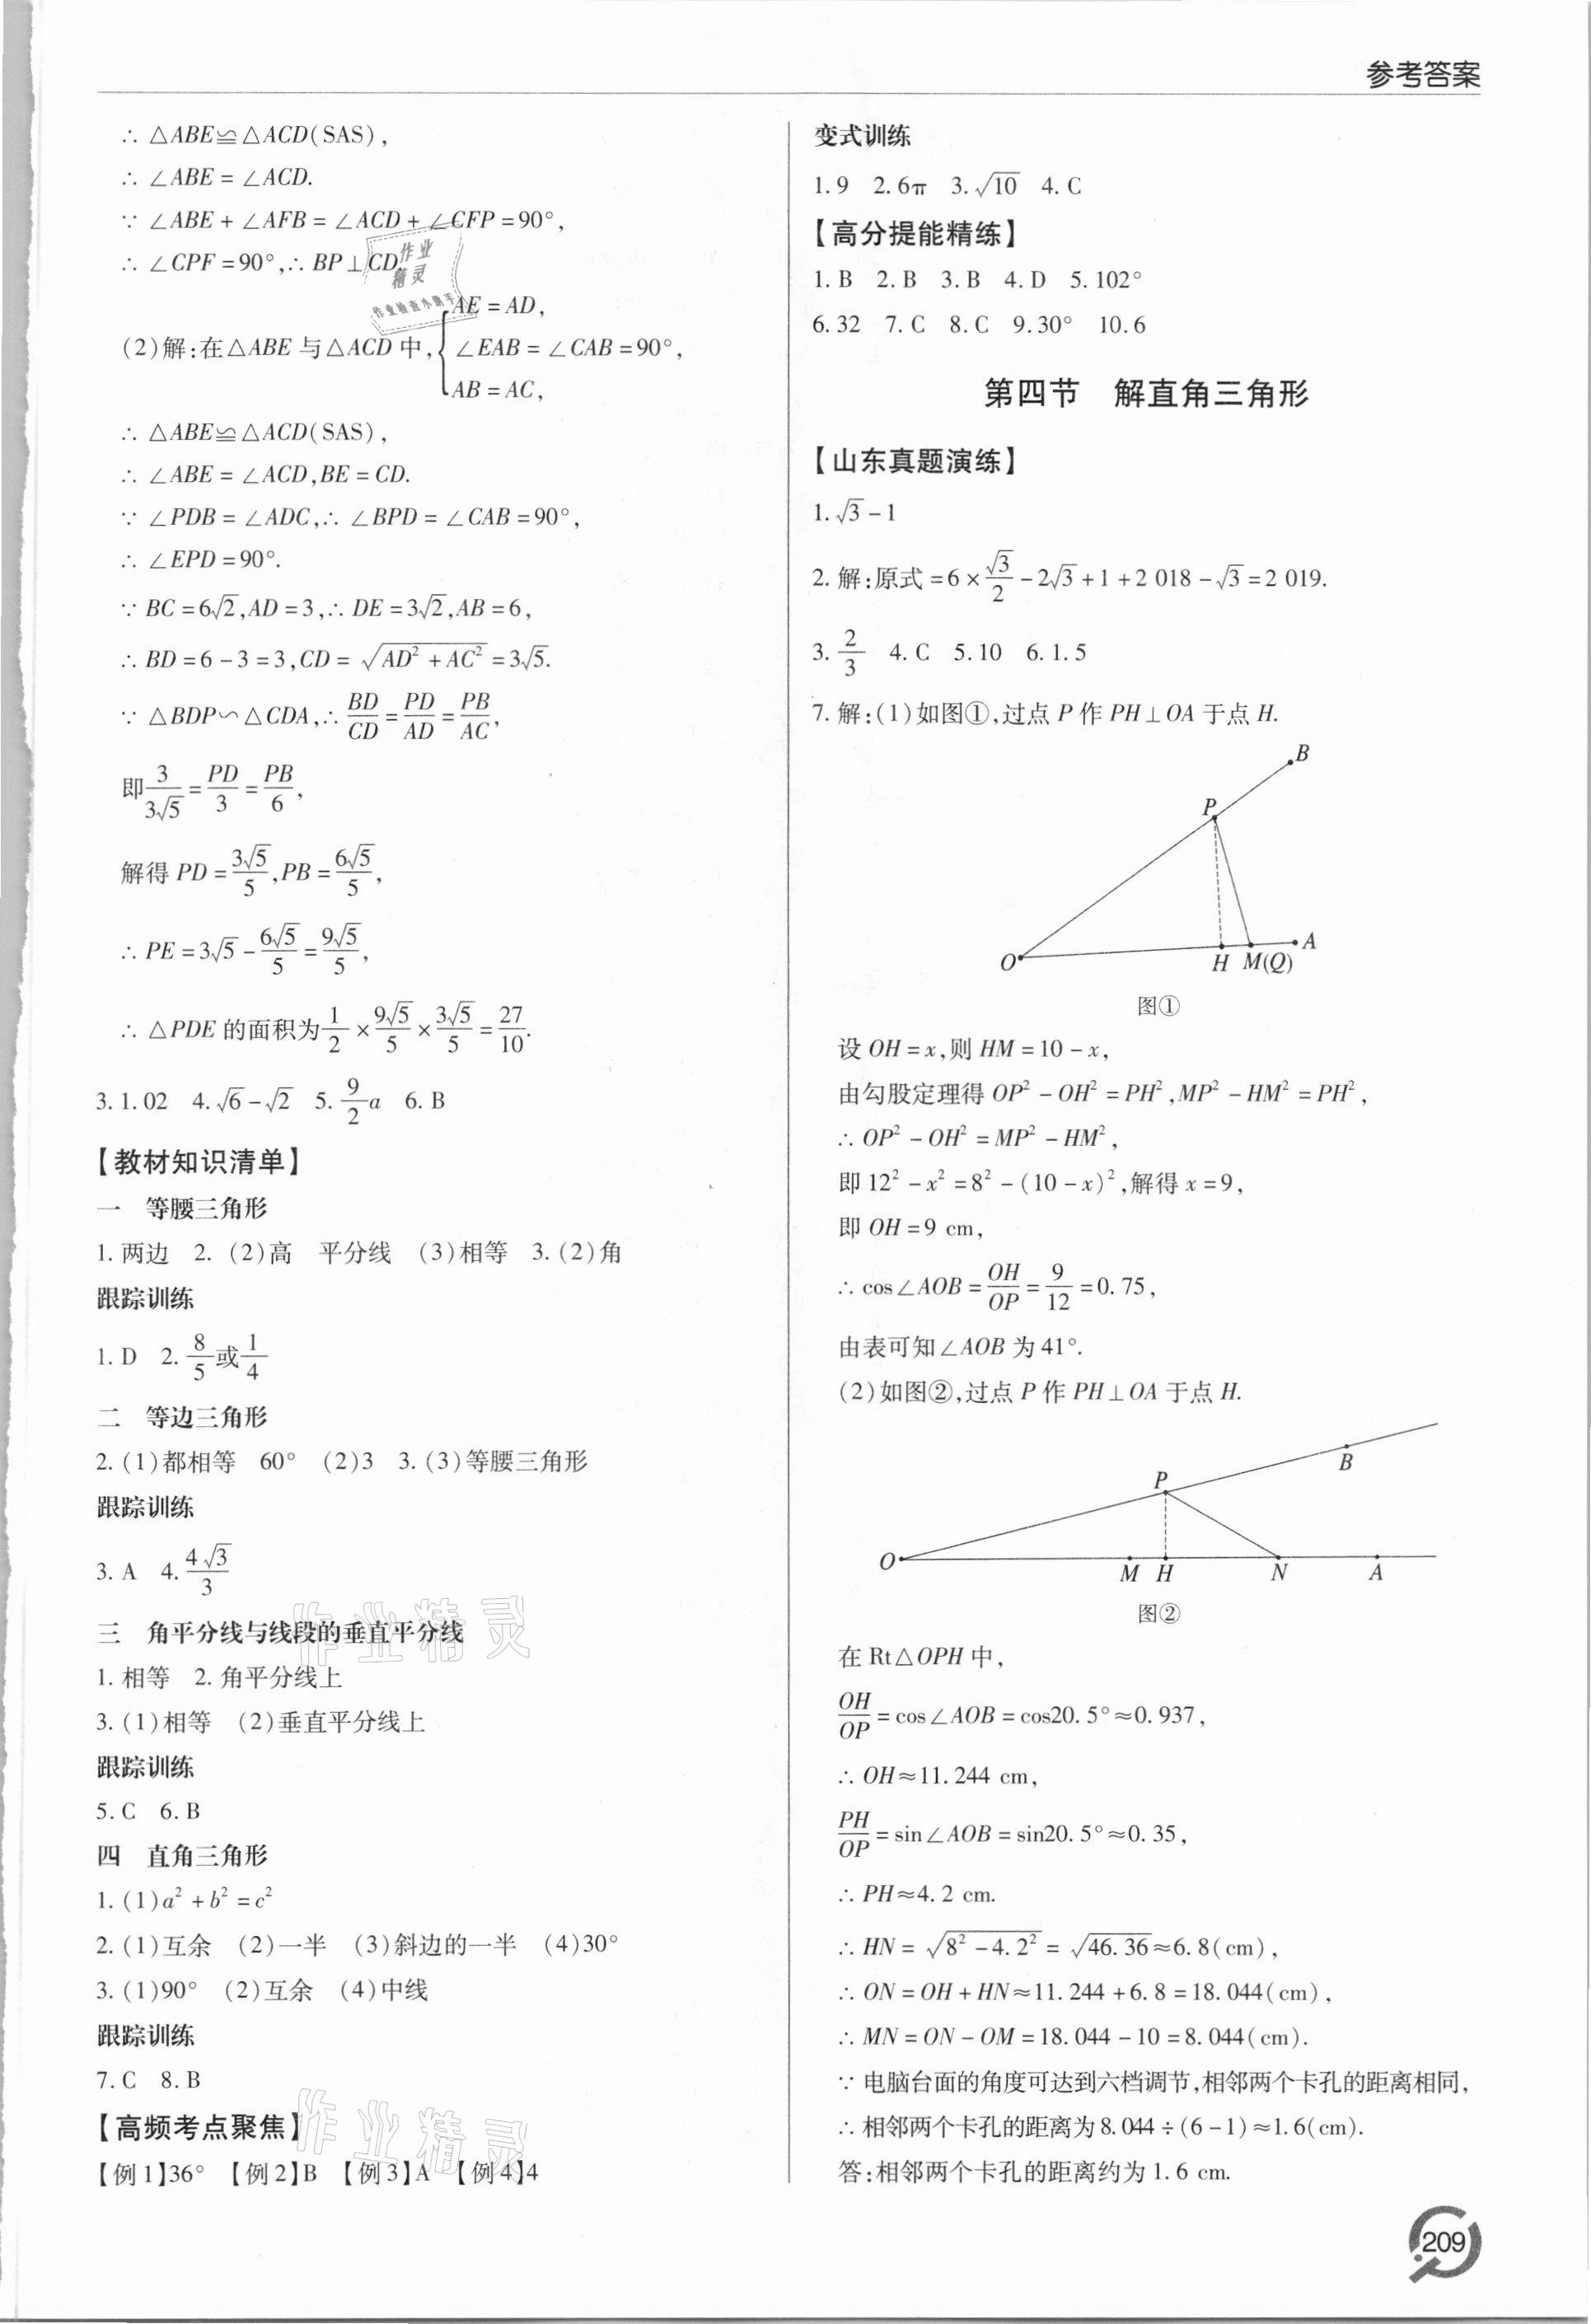 参考答案
∴ △ABE≌△ACD(SAS),
∴ ∠ABE = ∠ACD.
∵ ∠ABE + ∠AFB = ∠ACD + ∠CFP = 90°,
∴ ∠CPF = 90°,∴ BP⊥CD.
(2)解:在△ABE 与△ACD 中, { AE = AD, ∠EAB = ∠CAB = 90°, AB = AC,
∴ △ABE≌△ACD(SAS),
∴ ∠ABE = ∠ACD,BE = CD.
∵ ∠PDB = ∠ADC,∴ ∠BPD = ∠CAB = 90°,
∴ ∠EPD = 90°.
∵ BC = 6√2,AD = 3,∴ DE = 3√2,AB = 6,
∴ BD = 6 - 3 = 3,CD = √(AD² + AC²) = 3√5.
∵ △BDP∽△CDA,∴ BD/CD = PD/AD = PB/AC,
即 3/(3√5) = PD/3 = PB/6,
解得 PD = 3√5/5,PB = 6√5/5,
∴ PE = 3√5 - 6√5/5 = 9√5/5,
∴ △PDE 的面积为 1/2 × 9√5/5 × 3√5/5 = 27/10.
3. 1.02 4. √6 - √2 5. 9/2 a 6. B
【教材知识清单】
一 等腰三角形
1. 两边 2. (2)高 平分线 (3)相等 3. (2)角
跟踪训练
1. D 2. 8/5 或 1/4
二 等边三角形
2. (1)都相等 60° (2)3 3. (3)等腰三角形
跟踪训练
3. A 4. 4√3/3
三 角平分线与线段的垂直平分线
1. 相等 2. 角平分线上
3. (1)相等 (2)垂直平分线上
跟踪训练
5. C 6. B
四 直角三角形
1. (1)a² + b² = c²
2. (1)互余 (2)一半 (3)斜边的一半 (4)30°
3. (1)90° (2)互余 (4)中线
跟踪训练
7. C 8. B
【高频考点聚焦】
【例 1】36° 【例 2】B 【例 3】A 【例 4】4
变式训练
1. 9 2. 6π 3. √10 4. C
【高分提能精练】
1. B 2. B 3. B 4. D 5. 102°
6. 32 7. C 8. C 9. 30° 10. 6
第四节 解直角三角形
【山东真题演练】
1. √3 - 1
2. 解:原式 = 6 × √3/2 - 2√3 + 1 + 2 018 - √3 = 2 019.
3. 2/3 4. C 5. 10 6. 1.5
7. 解:(1)如图①,过点 P 作 PH⊥OA 于点 H.
B
P
O H M(Q) A
图①
设 OH = x,则 HM = 10 - x,
由勾股定理得 OP² - OH² = PH²,MP² - HM² = PH²,
∴ OP² - OH² = MP² - HM²,
即 12² - x² = 8² - (10 - x)²,解得 x = 9,
即 OH = 9 cm,
∴ cos∠AOB = OH/OP = 9/12 = 0.75,
由表可知∠AOB 为 41°.
(2)如图②,过点 P 作 PH⊥OA 于点 H.
B
P
O M H N A
图②
在 Rt△OPH 中,
OH/OP = cos∠AOB = cos20.5°≈0.937,
∴ OH≈11.244 cm,
PH/OP = sin∠AOB = sin20.5°≈0.35,
∴ PH≈4.2 cm.
∴ HN = √(8² - 4.2²) = √46.36≈6.8(cm),
∴ ON = OH + HN≈11.244 + 6.8 = 18.044(cm),
∴ MN = ON - OM = 18.044 - 10 = 8.044(cm).
∵ 电脑台面的角度可达到六档调节,相邻两个卡孔的距离相同,
∴ 相邻两个卡孔的距离为 8.044 ÷ (6 - 1)≈1.6(cm).
答:相邻两个卡孔的距离约为 1.6 cm.
209
作业精灵
作业检查小助手
作业精灵
作业精灵